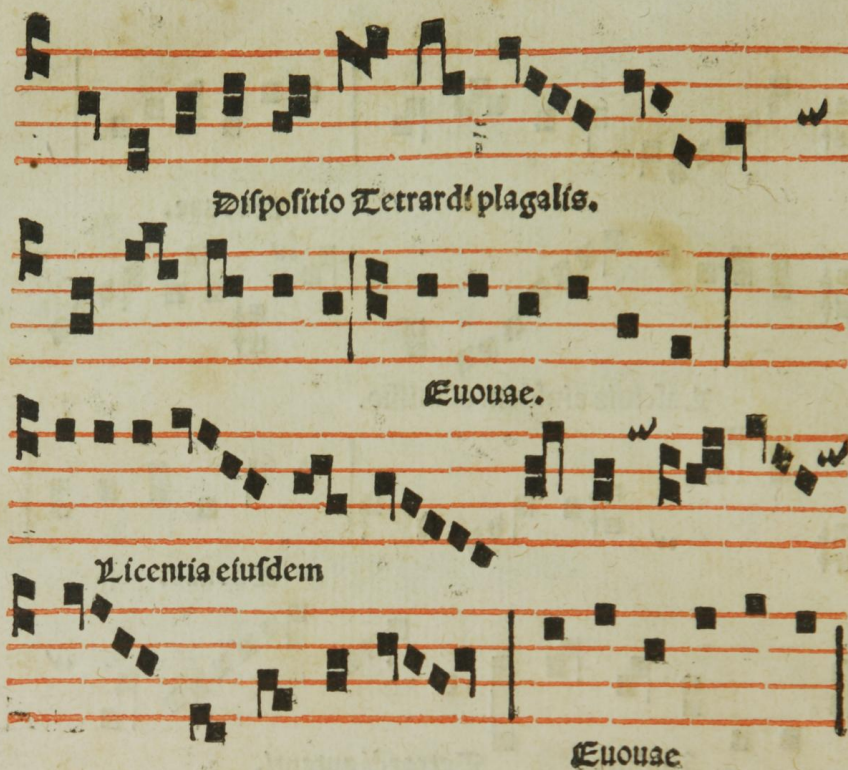 Diſpoſitio Tetrardi plagalis.
Euouae.
Licentia eiuſdem
Euouae